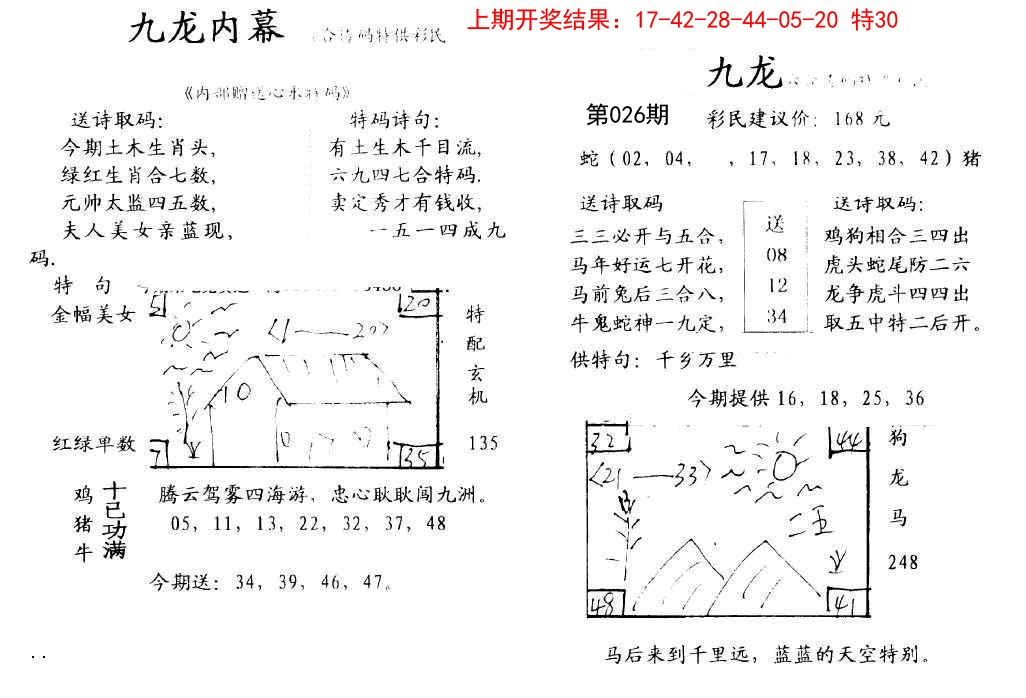 上期开奖结果：17-42-28-44-05-20 特30
九龙内幕
特供彩民
《内部赠送心水特码》
送诗取码：
今期土木生肖头，
绿红生肖合七数，
元帅太监四五数，
夫人美女亲蓝现，
特码诗句：
有土生木千目流，
六九四七合特码.
卖定秀才有钱收，
一五一四成九
码.
特 句
金幅美女
红绿单数
20
<1——20>
10
35
特
配
玄
机
135
鸡
猪
牛
十
己
功
满
腾云驾雾四海游、忠心耿耿闯九洲。
05，11，13，22，32，37，48
今期送：34，39，46，47。
九龙
第026期
彩民建议价：168元
蛇（02，04， ，17，18，23，38，42）猪
送诗取码
三三必开与五合，
马年好运七开花，
马前兔后三合八，
牛鬼蛇神一九定，
送
08
12
34
送诗取码：
鸡狗相合三四出
虎头蛇尾防二六
龙争虎斗四四出
取五中特二后开。
供特句：千乡万里
今期提供16，18，25，36
32
44
<21——33>
48
41
狗
龙
马
248
马后来到千里远，蓝蓝的天空特别。